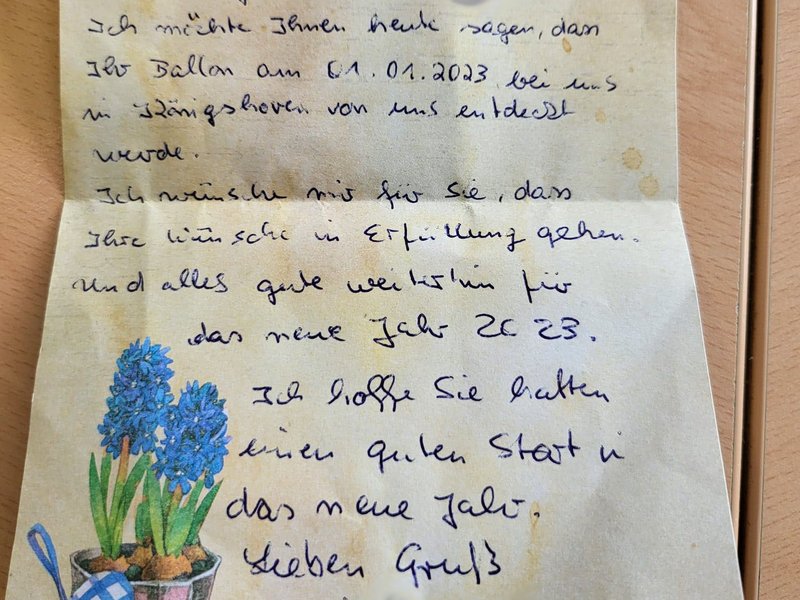 Ich möchte Ihnen heute sagen, dass
Ihr Ballon am 01.01.2023 bei uns
in Königshoven von uns entdeckt
wurde.
Ich wünsche mir für Sie, dass
Ihre Wünsche in Erfüllung gehen.
und alles gute weiterhin für
das neue Jahr 2023.
Ich hoffe Sie hatten
einen guten Start in
das neue Jahr.
Lieben Gruß